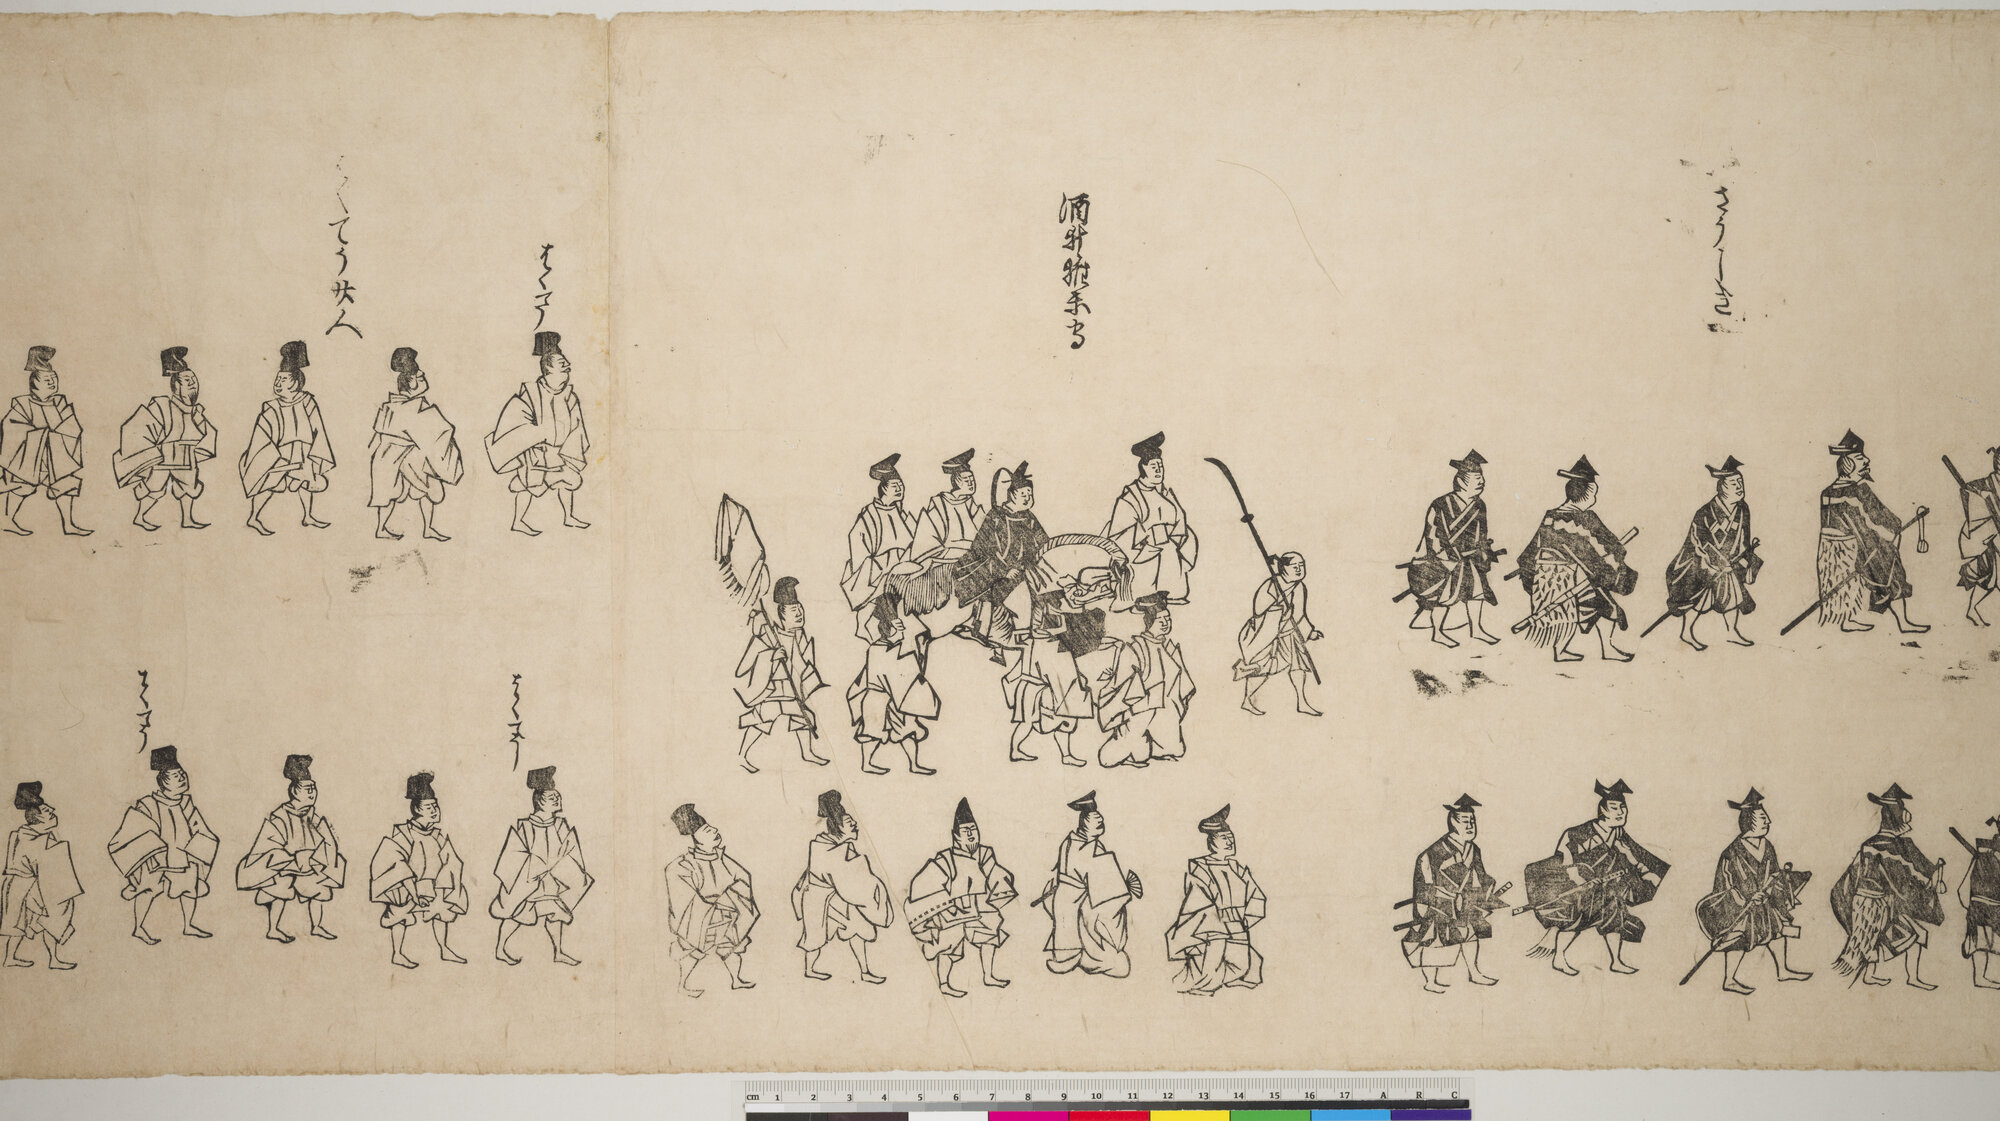 さうしき
酒井雅楽守
はくてう
くてう廿人
はくてう
はくてう
cm 1 2 3 4 5 6 7 8 9 10 11 12 13 14 15 16 17 A R C